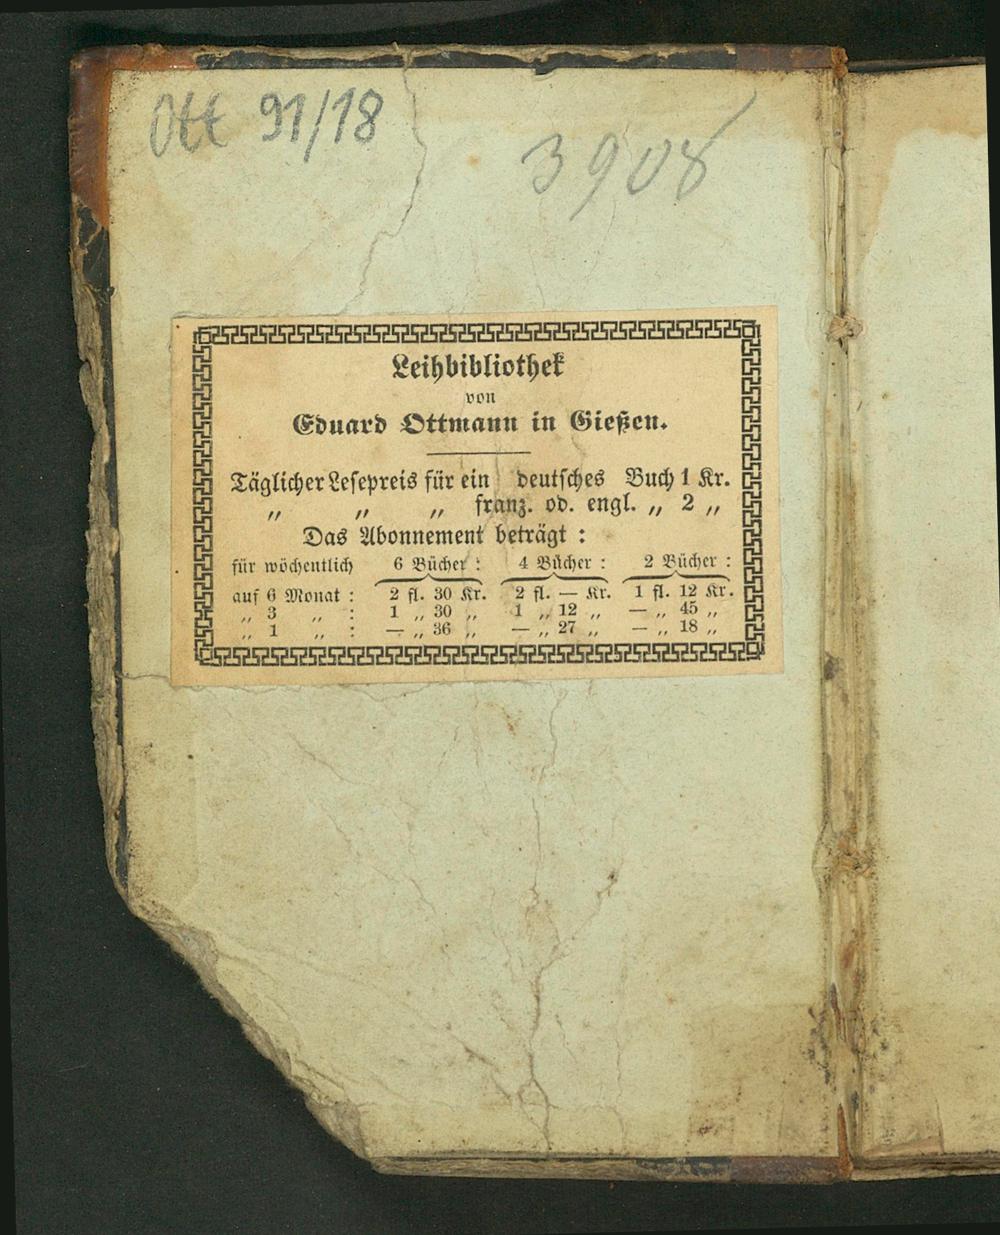 Ott 91/18
3908
Leihbibliothek
von
Eduard Ottmann in Gießen.
Täglicher Lesepreis für ein deutsches Buch 1 Kr.
„ „ „ franz. od. engl. „ 2 „
Das Abonnement beträgt :
für wöchentlich 6 Bücher : 4 Bücher : 2 Bücher :
auf 6 Monat : 2 fl. 30 Kr. 2 fl. — Kr. 1 fl. 12 Kr.
„ 3 „ : 1 „ 30 „ 1 „ 12 „ — „ 45 „
„ 1 „ : — „ 36 „ — „ 27 „ — „ 18 „